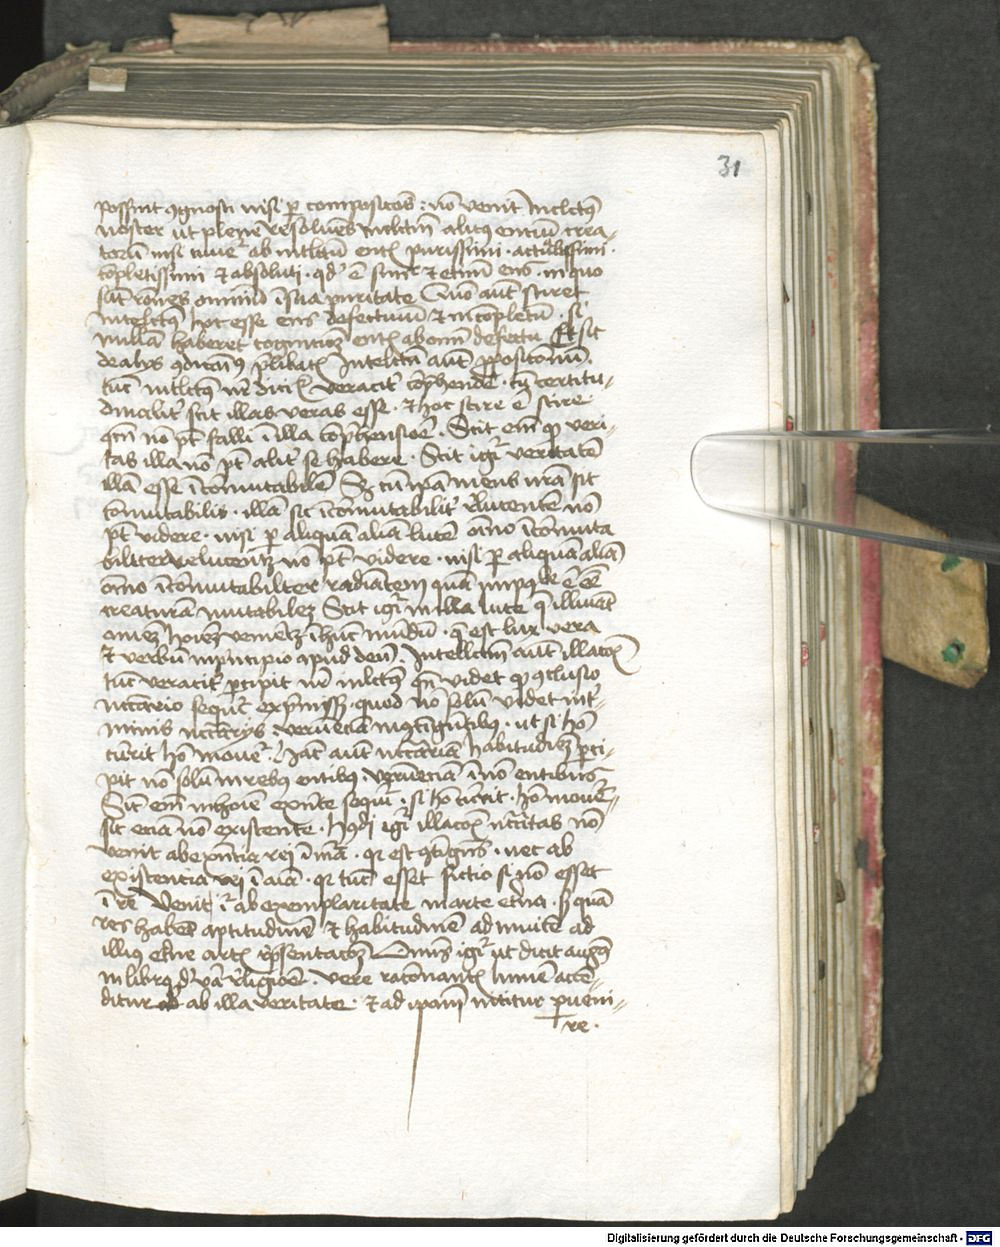 31
possint cognosci nisi per compositos : non venit intellectus
noster ut plene resolvens intellectum alicuius entium crea-
torum nisi iuvetur ab intellectu entis purissimi · actualissimi ·
completissimi et absoluti · quod est simpliciter et eternum ens · in quo
sunt rationes omnium in sua puritate Quomodo autem sciret
intellectus hoc esse ens defectivum et incompletum · si
nullam haberet cognitionem entis absque omni defectu Et sic
de aliis conditionibus prelibatis Intellectum autem propositionum ·
tunc intellectus noster dicitur veraciter comprehendere · cum certitu-
dinaliter scit illas veras esse · et hoc scire est scire
quoniam non potest falli in illa comprehensione · Scit enim quod veri-
tas illa non potest aliter se habere · Scit igitur veritatem
illam esse incommutabilem Sed cum ipsa mens nostra sit
commutabilis · illam sic incommutabiliter relucentem non
potest videre · nisi per aliquam aliam lucem omnino incommuta
biliter relucentem non potest videre · nisi per aliquam aliam
omnino incommutabiliter radiantem quam impossibile est esse
creaturam mutabilem Scit igitur in illa luce que illuminat
omnem hominem venientem in hunc mundum · que est lux vera
et verbum in principio apud deum Intellectum autem illationis
tunc veraciter percipit noster intellectus quando videt quod conclusio
necessario sequitur ex premissis · quod non solum videt in ter-
minis necessariis · verum eciam in contingentibus · ut si homo
currit homo movetur · Hanc autem necessariam habitudinem perci-
pit non solum in rebus entibus verum eciam in non entibus
Sicut enim homine existente sequitur · si homo currit · homo movetur
sic eciam non existente · Huiusmodi igitur illationis necessitas non
venit ab existentia rei in materia · quia est contingens · nec ab
existencia rei in anima · quia tunc esset fictio si non esset
in re Venit igitur ab exemplaritate in arte eterna · secundum quam
res habent aptitudinem et habitudinem ad invicem ad
illius eterne artis representationem Omnis igitur ut dicit augustinus
in libro de vera religione · vere ratiocinantis lumen accen-
ditur ab illa veritate · et ad ipsam nititur perveni-
re ·
Digitalisierung gefördert durch die Deutsche Forschungsgemeinschaft - DFG